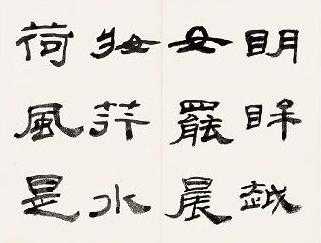 明眸越
女罷晨
妝荇水
荷風是